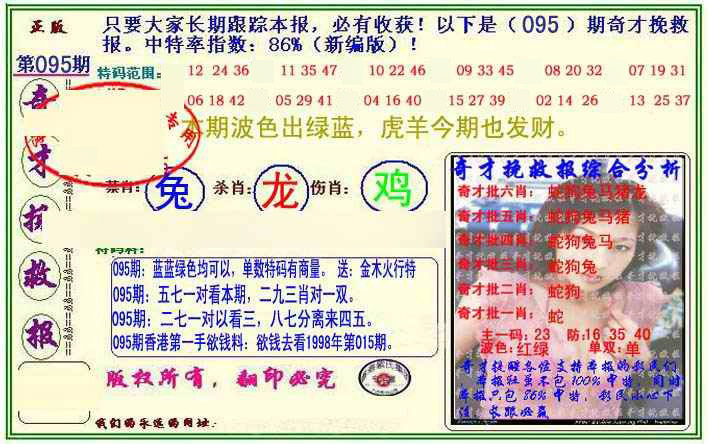 正版
只要大家长期跟踪本报，必有收获！以下是（095）期奇才挽救
报。中特率指数：86%（新编版）！
第095期
特码范围：
12 24 36 11 35 47 10 22 46 09 33 45 08 20 32 07 19 31
06 18 42 05 29 41 04 16 40 15 27 39 02 14 26 13 25 37
本期波色出绿蓝，虎羊今期也发财。
奇
才
救
报
禁肖：兔 杀肖：龙 伤肖：鸡
095期：蓝蓝绿色均可以，单数特码有商量。 送：金木火行特
095期：五七一对看本期，二九三肖对一双。
095期：二七一对以看三，八七分离来四五。
095期香港第一手欲钱料：欲钱去看1998年第015期。
版权所有，翻印必究
我们的永远的网址：
奇才挽救报综合分析
奇才批六肖：蛇狗兔马猪龙
奇才批五肖：蛇狗兔马猪
奇才批四肖：蛇狗兔马
奇才批三肖：蛇狗兔
奇才批二肖：蛇狗
奇才批一肖：蛇
主一码：23 防：16 35 40
波色：红绿 单双：单
奇才提醒各位支持本报的彩民们
本报社虽不包100%中特，同时
本报只包86%中特，彩民小心下
注，长跟必赢